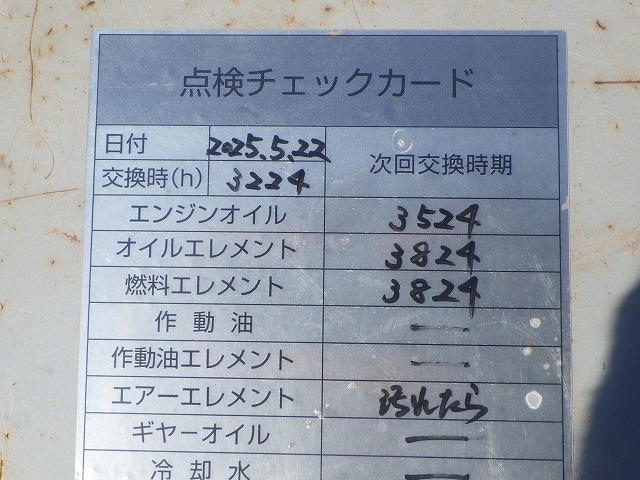 点検チェックカード
日付 2025.5.22
交換時(h) 3224 次回交換時期
エンジンオイル 3524
オイルエレメント 3824
燃料エレメント 3824
作動油 ―
作動油エレメント ―
エアーエレメント 汚れたら
ギヤーオイル ―
冷却水 ―